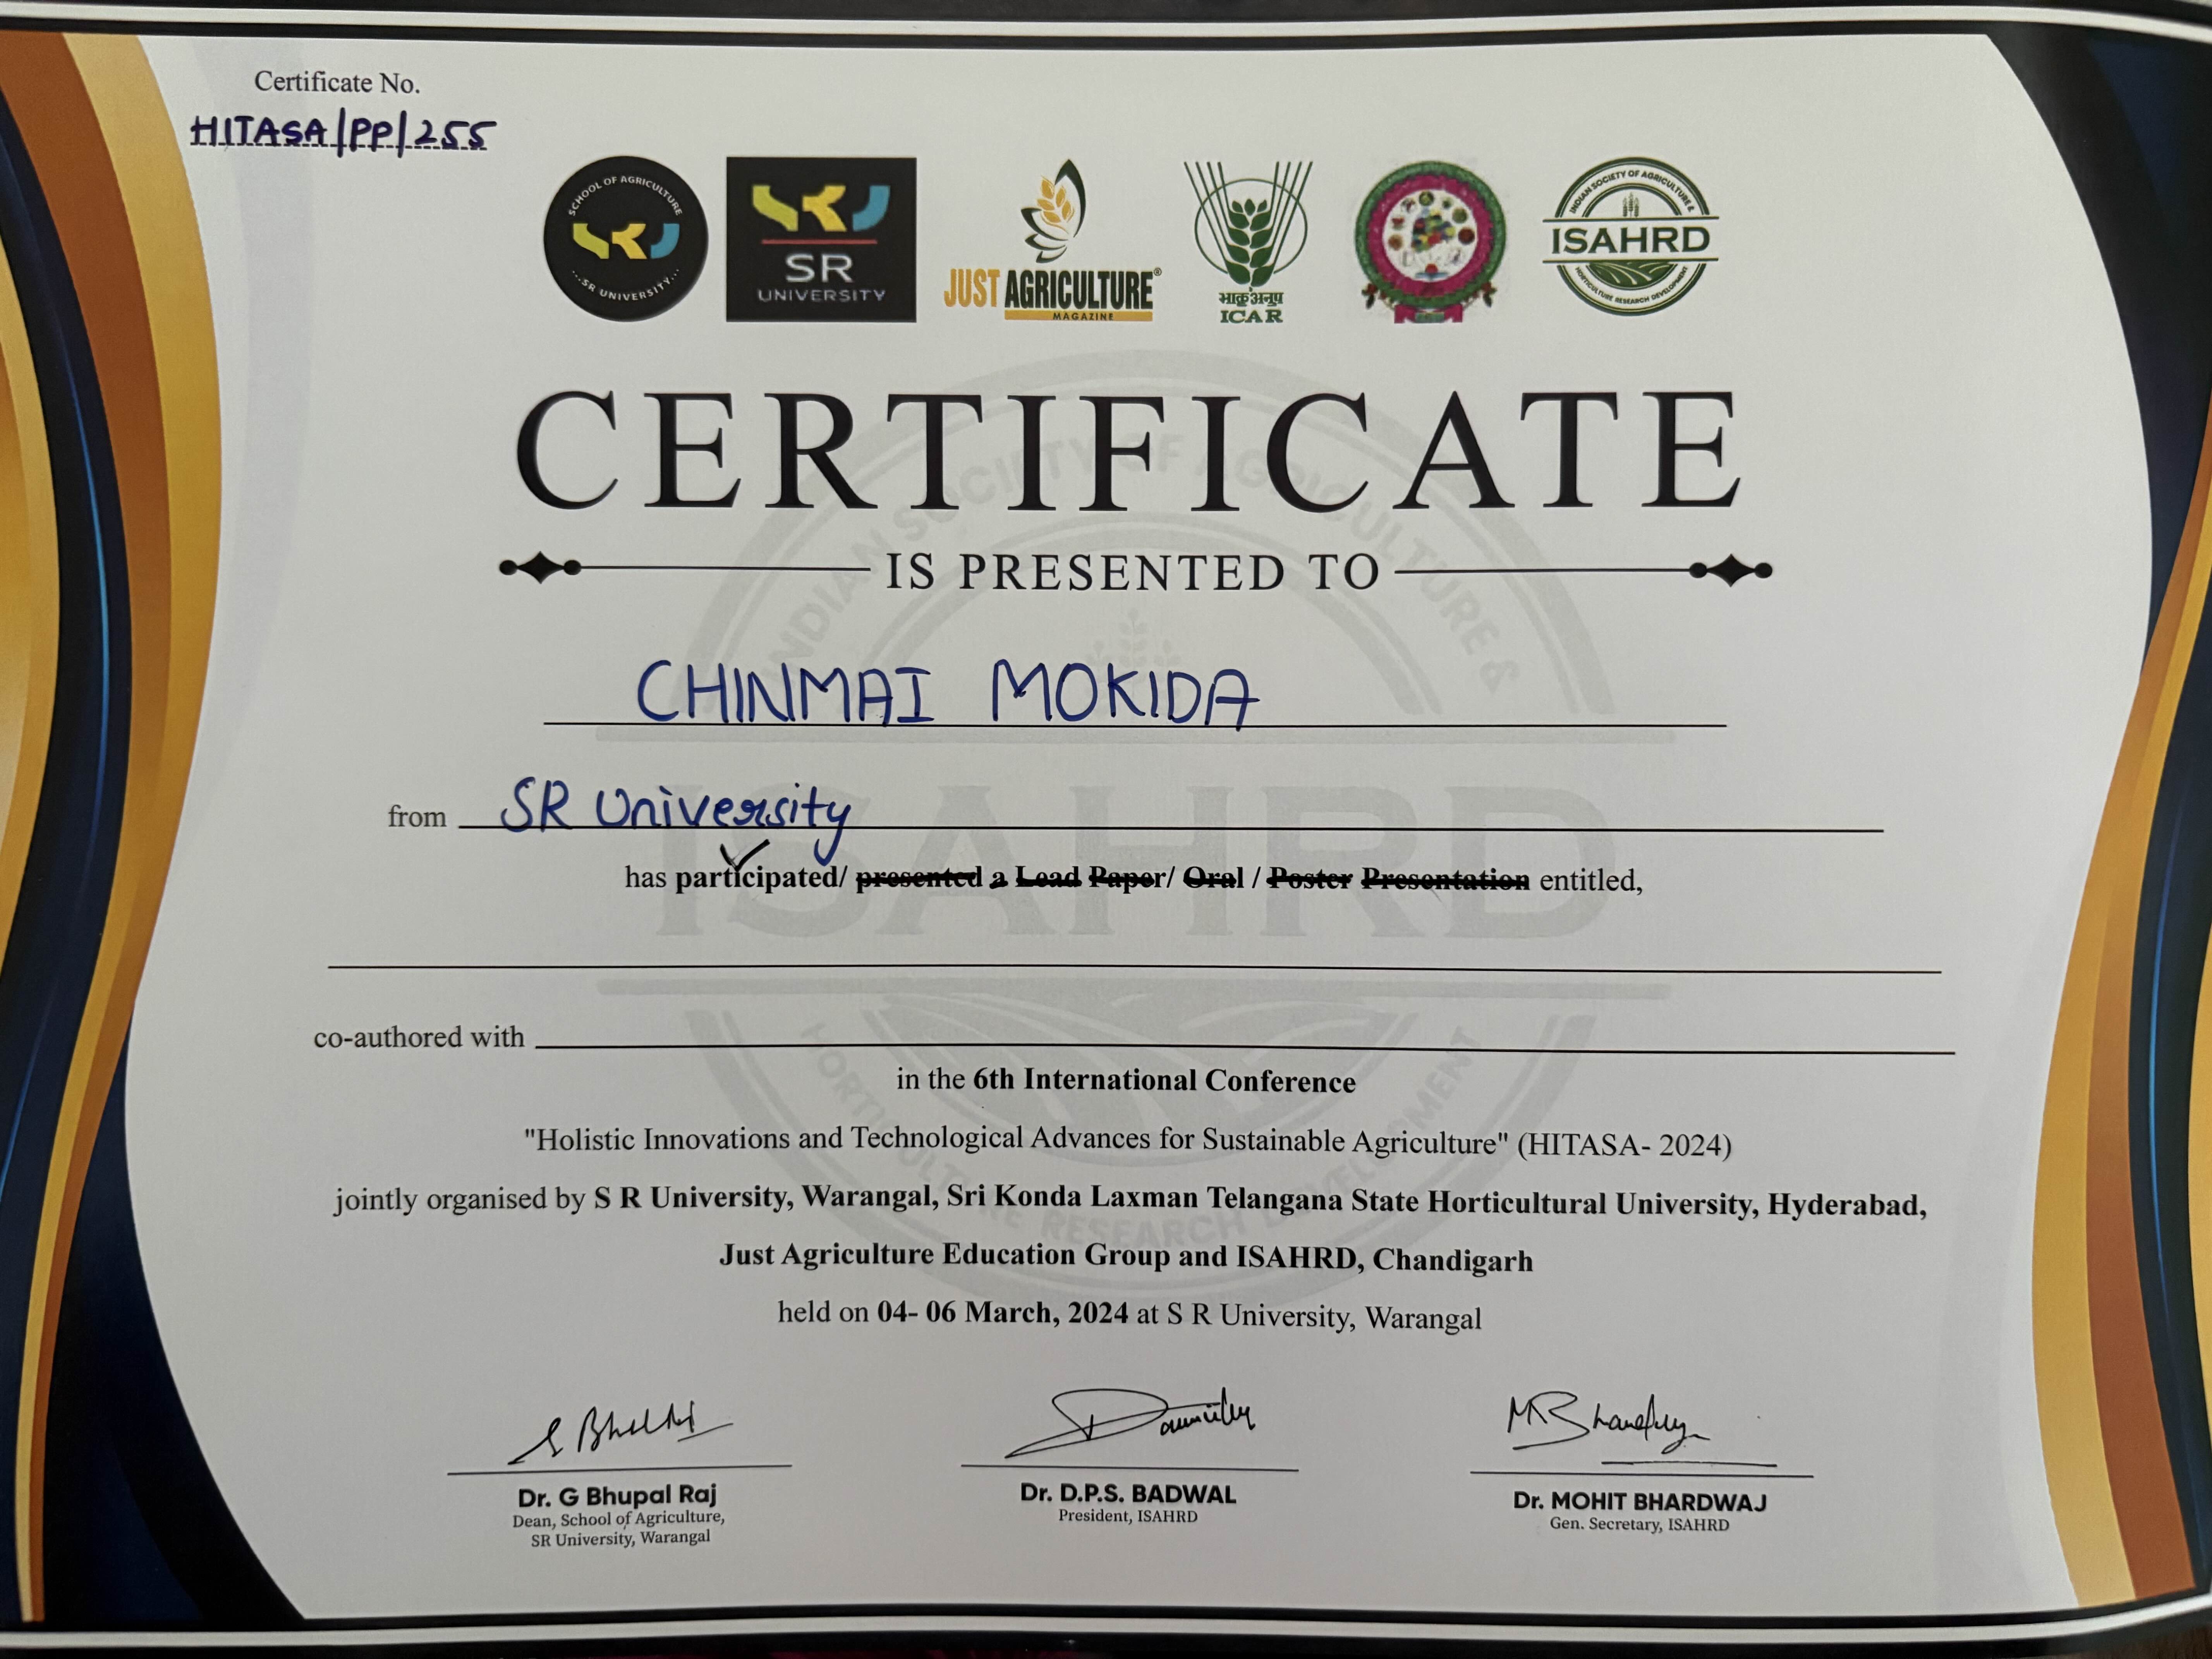 Certificate No.
HITASA/PP/255
SCHOOL OF AGRICULTURE
...SR UNIVERSITY...
SR
UNIVERSITY
JUST AGRICULTURE®
MAGAZINE
भाकृअनुप
ICAR
INDIAN SOCIETY OF AGRICULTURE &
ISAHRD
HORTICULTURE RESEARCH DEVELOPMENT
CERTIFICATE
IS PRESENTED TO
CHINMAI MOKIDA
from SR University
has participated/ presented a Lead Paper/ Oral / Poster Presentation entitled,
co-authored with
in the 6th International Conference
"Holistic Innovations and Technological Advances for Sustainable Agriculture" (HITASA- 2024)
jointly organised by S R University, Warangal, Sri Konda Laxman Telangana State Horticultural University, Hyderabad,
Just Agriculture Education Group and ISAHRD, Chandigarh
held on 04- 06 March, 2024 at S R University, Warangal
Dr. G Bhupal Raj
Dean, School of Agriculture,
SR University, Warangal
Dr. D.P.S. BADWAL
President, ISAHRD
Dr. MOHIT BHARDWAJ
Gen. Secretary, ISAHRD